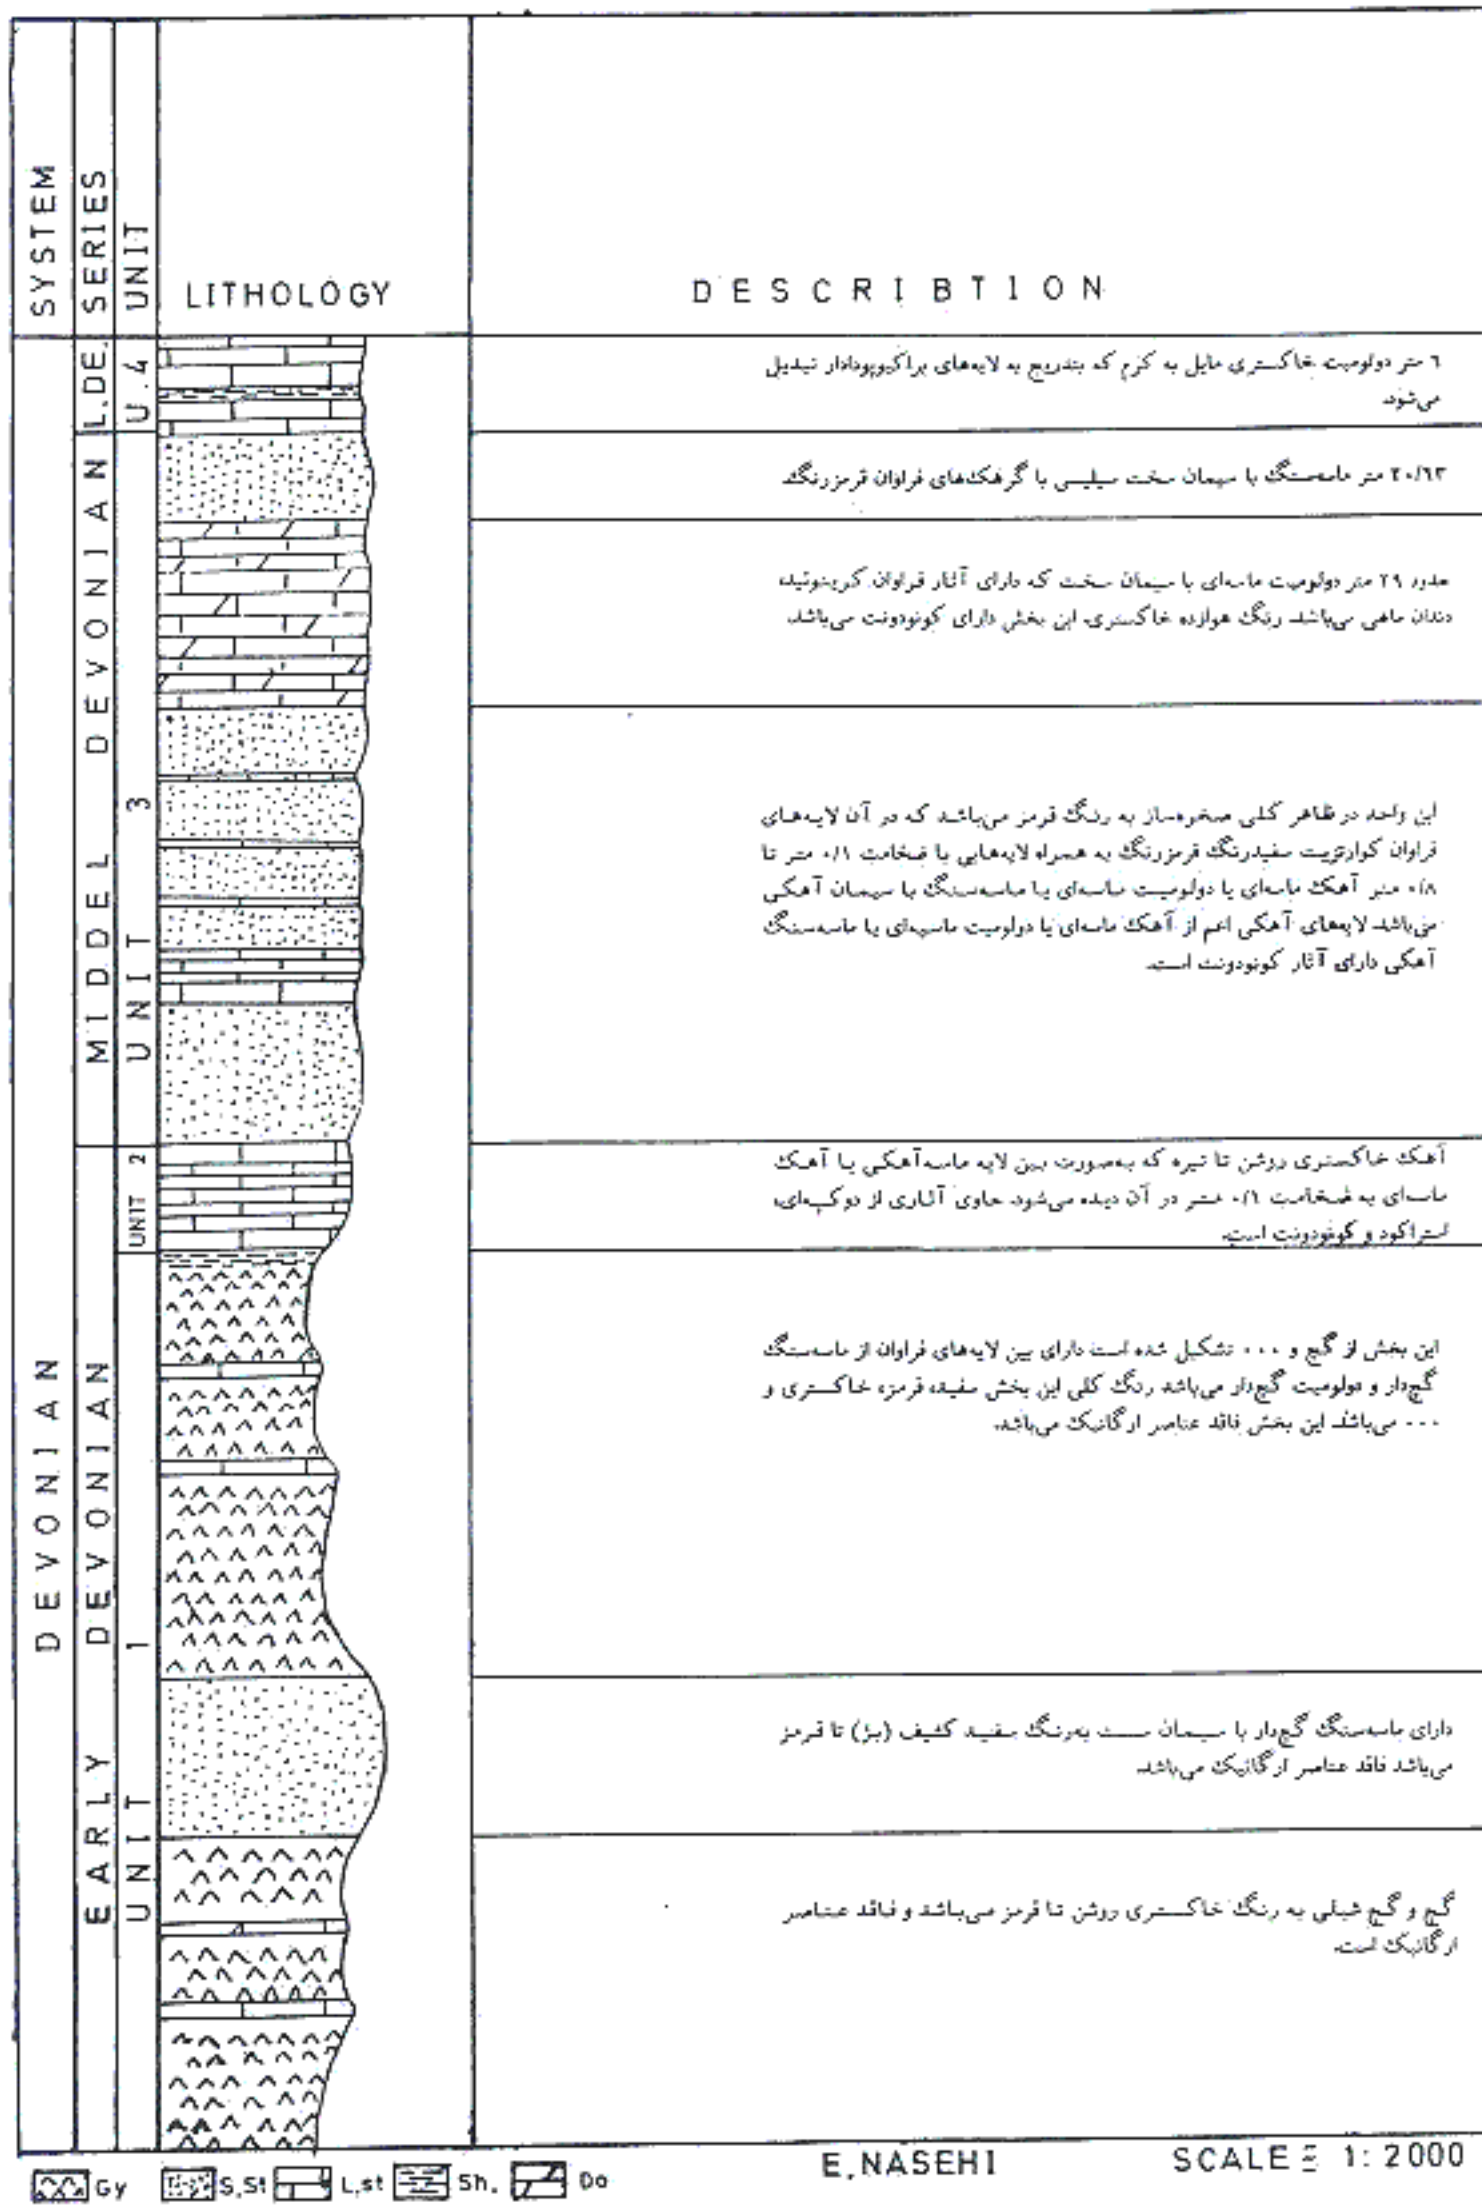 SYSTEM
SERIES
UNIT
LITHOLOGY
DESCRIBTION
L.DE.
U.4
۶ متر دولومیت خاکستری مایل به کرم که بتدریج به لایه‌های براکیوپودادار تبدیل
می‌شود.
MIDDEL DEVONIAN
UNIT 3
۲۰/۶۳ متر ماسه‌سنگ با سیمان سخت سیلیسی با گرهک‌های فراوان قرمزرنگ
حدود ۲۹ متر دولومیت ماسه‌ای با سیمان سخت که دارای آثار فراوان کرینوئید،
دندان ماهی می‌باشد. رنگ هوازده خاکستری. این بخش دارای کونودونت می‌باشد.
این واحد در ظاهر کلی صخره‌ساز به رنگ قرمز می‌باشد که در آن لایه‌های
فراوان کوارتزیت سفیدرنگ قرمزرنگ به همراه لایه‌هایی با ضخامت ۰/۱ متر تا
۰/۸ متر آهک ماسه‌ای یا دولومیت ماسه‌ای یا ماسه‌سنگ با سیمان آهکی
می‌باشد. لایه‌های آهکی اعم از آهک ماسه‌ای یا دولومیت ماسه‌ای یا ماسه‌سنگ
آهکی دارای آثار کونودونت است.
DEVONIAN
EARLY DEVONIAN
UNIT 2
آهک خاکستری روشن تا تیره که به‌صورت بین لایه ماسه‌آهکی یا آهک
ماسه‌ای به ضخامت ۰/۱ متر در آن دیده می‌شود. حاوی آثاری از دوکپه‌ای،
استراکود و کونودونت است.
UNIT 1
این بخش از گچ و ۰۰۰ تشکیل شده است دارای بین لایه‌های فراوان از ماسه‌سنگ
گچ‌دار و دولومیت گچ‌دار می‌باشد رنگ کلی این بخش سفید، قرمز، خاکستری و
۰۰۰ می‌باشد. این بخش فاقد عناصر ارگانیک می‌باشد.
دارای ماسه‌سنگ گچ‌دار با سیمان سست به‌رنگ سفید کثیف (بژ) تا قرمز
می‌باشد فاقد عناصر ارگانیک می‌باشد.
گچ و گچ شیلی به رنگ خاکستری روشن تا قرمز می‌باشد و فاقد عناصر
ارگانیک است.
E.NASEHI
SCALE = 1:2000
Gy S.St L.st Sh. Do